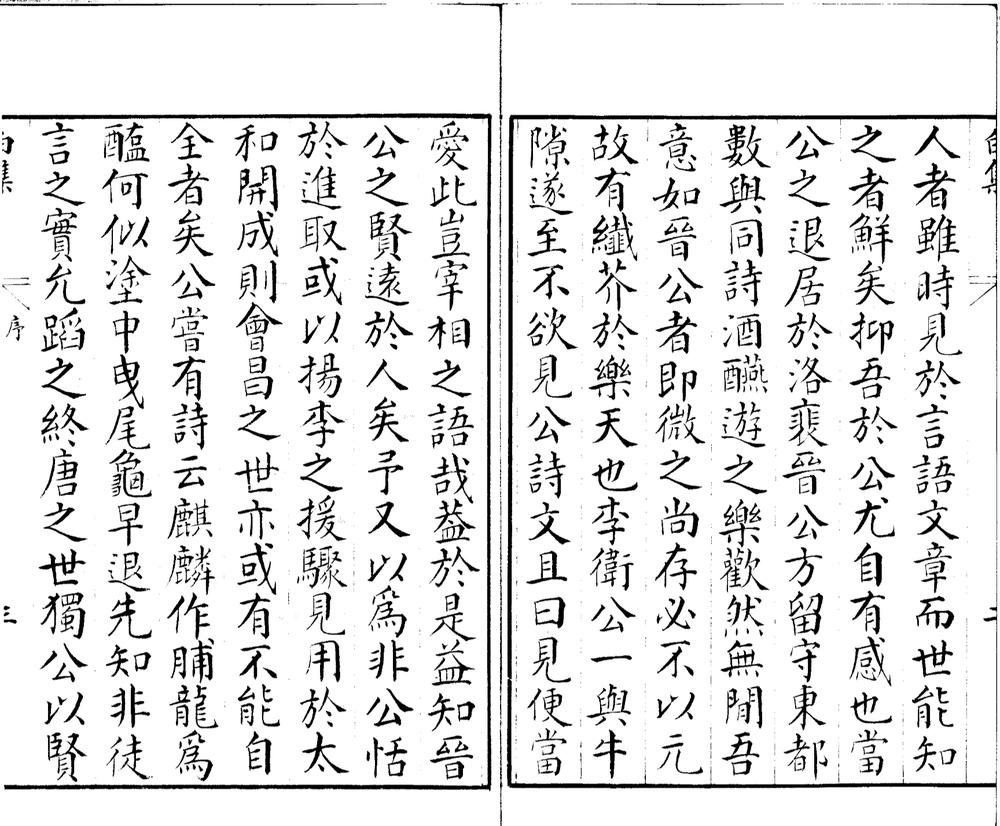 人者雖時見於言語文章而世能知
之者鮮矣抑吾於公尤自有感也當
公之退居於洛裴晉公方留守東都
數與同詩酒醼遊之樂歡然無間吾
意如晉公者即微之尚存必不以元
故有纖芥於樂天也李衛公一與牛
隙遂至不欲見公詩文且曰見便當
愛此豈宰相之語哉葢於是益知晉
公之賢遠於人矣予又以爲非公恬
於進取或以揚李之援驟見用於太
和開成則會昌之世亦或有不能自
全者矣公嘗有詩云麒麟作脯龍爲
醢何似塗中曳尾龜早退先知非徒
言之實允蹈之終唐之世獨公以賢
序
三